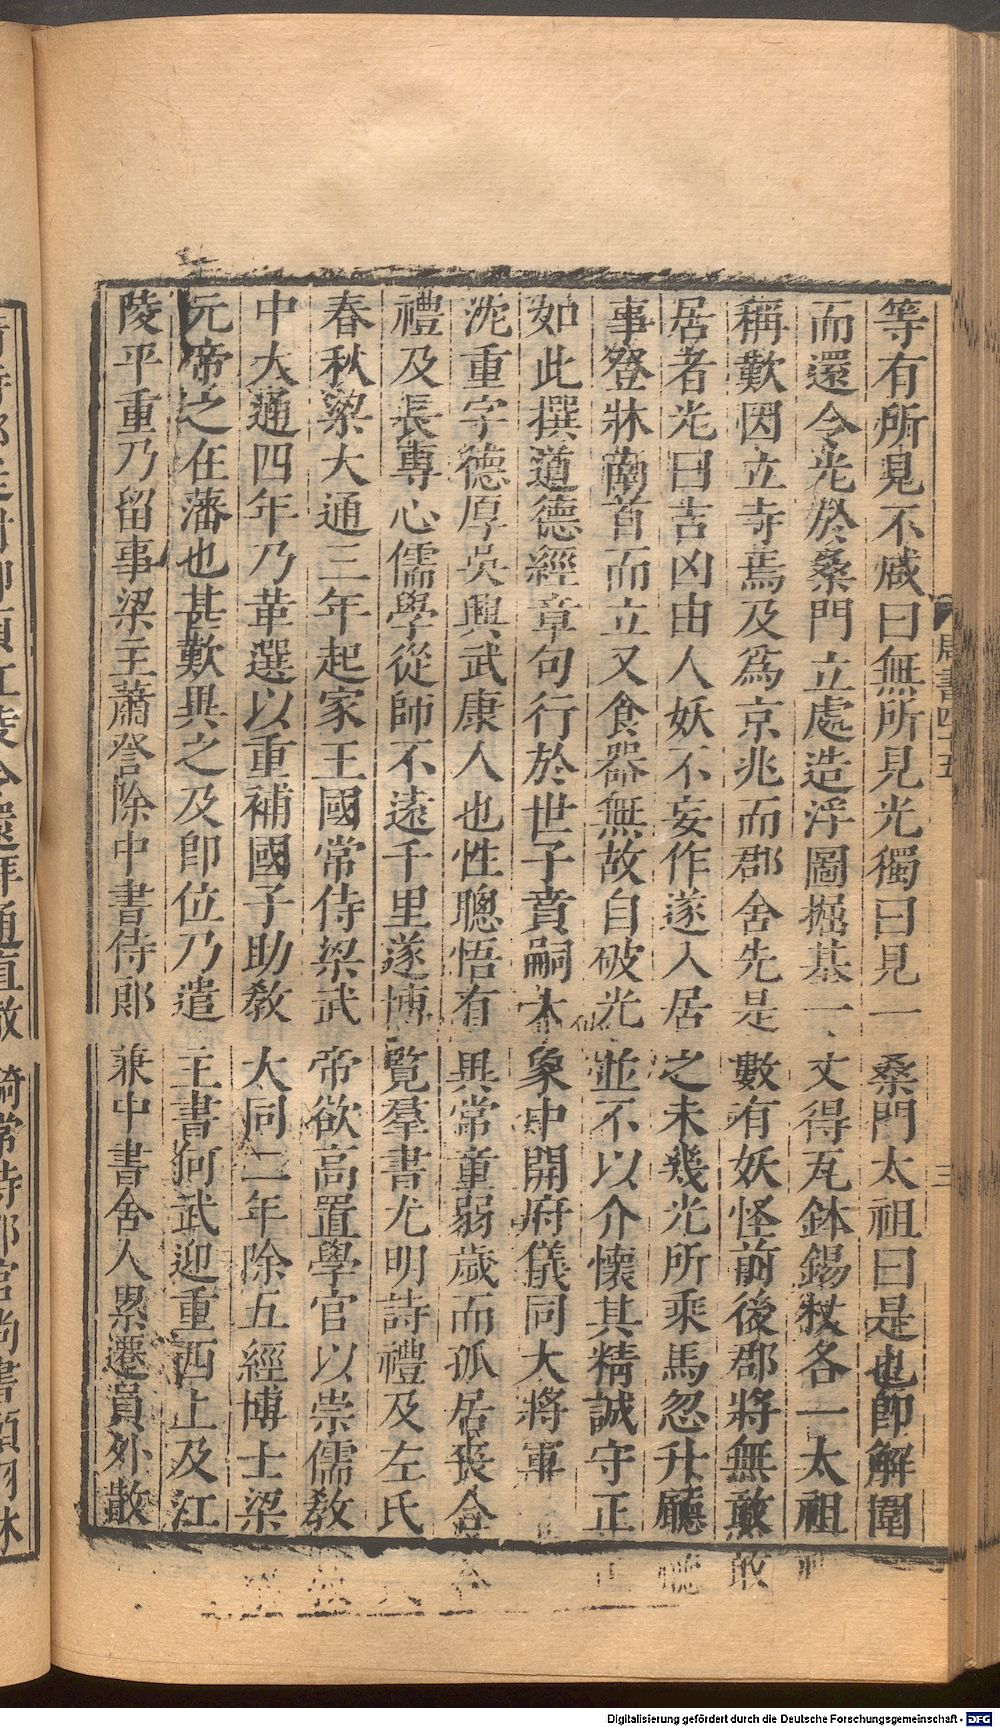 等有所見不咸曰無所見光獨曰見一桑門太祖曰是也即解圍
而還令光於桑門立處造浮圖掘基一丈得瓦鉢錫杖各一太祖
稱歎因立寺焉及爲京兆而郡舍先是數有妖怪前後郡將無敢
居者光曰吉凶由人妖不妄作遂入居之未幾光所乘馬忽升廳
事登牀南首而立又食器無故自破光並不以介懷其精誠守正
如此撰道德經章句行於世子賁嗣大象中開府儀同大將軍
沈重字德厚吳興武康人也性聰悟有異常童弱歲而孤居喪合
禮及長專心儒學從師不遠千里遂博覽羣書尤明詩禮及左氏
春秋梁大通三年起家王國常侍梁武帝欲高置學官以崇儒敎
中大通四年乃革選以重補國子助敎大同二年除五經博士梁
元帝之在藩也甚歎異之及即位乃遣主書何武迎重西上及江
陵平重乃留事梁主蕭詧除中書侍郎兼中書舍人累遷員外散
周書四十五
三
Digitalisierung gefördert durch die Deutsche Forschungsgemeinschaft - DFG